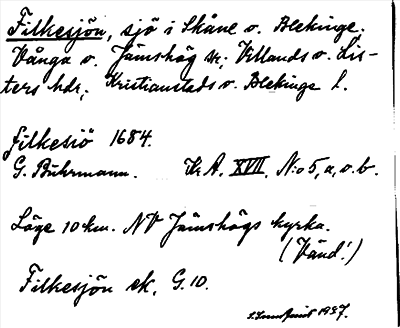 Filkesjön, sjö i Skåne o. Blekinge.
Vånga o. Jämshög sr; Villands o. Lis-
ters hdr; Kristianstads o. Blekinge l.
filkesiö 1684.
G. Buhrmann. Kr A. XVII. N:o 5, a, o. b.
Läge 10 km. NV Jämshögs kyrka.
(Vänd!)
Filkesjön ek. G. 10.
1937.